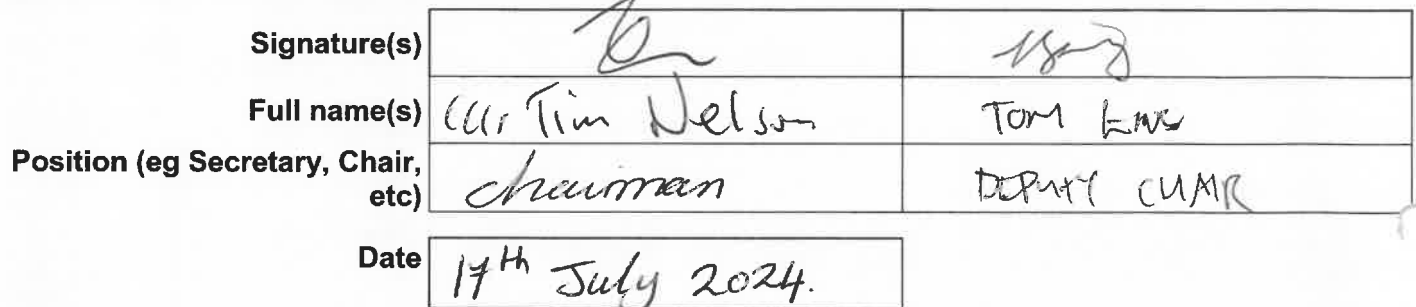 Signature(s)
Full name(s) Mr Tim Nelson TOM
Position (eg Secretary, Chair,
etc) Chairman DEPUTY CHAIR
Date 17th July 2024.